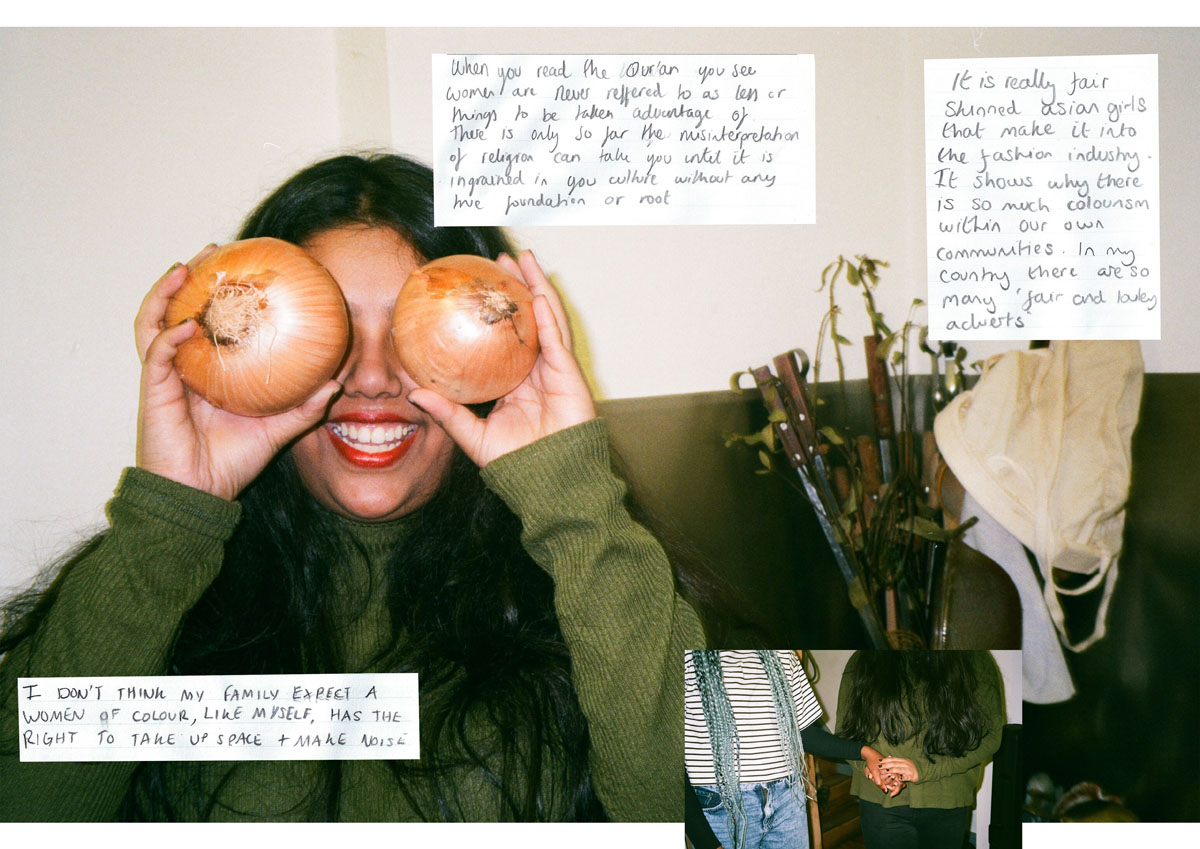 When you read the Qur'an you see
women are never reffered to as less or
things to be taken advantage of.
There is only so far the misinterpretation
of religion can take you until it is
ingrained in you culture without any
true foundation or root
It is really fair
skinned asian girls
that make it into
the fashion industry.
It shows why there
is so much colourism
within our own
communities. In my
country there are so
many 'fair and lovley
adverts'
I DON'T THINK MY FAMILY EXPECT A
WOMEN OF COLOUR, LIKE MYSELF, HAS THE
RIGHT TO TAKE UP SPACE + MAKE NOISE